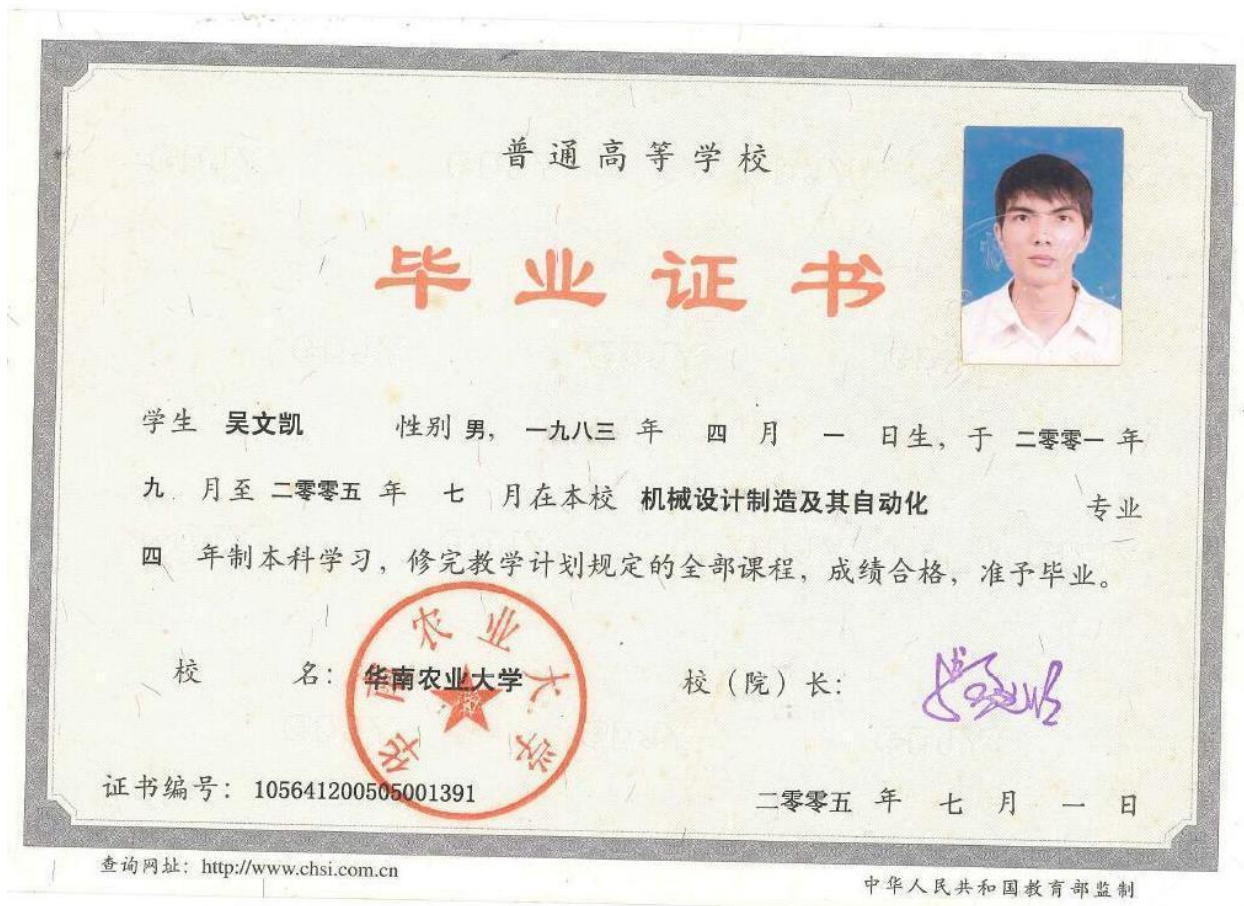 普通高等学校
毕业证书
学生 吴文凯 性别 男, 一九八三 年 四 月 一 日生, 于 二零零一 年
九 月至 二零零五 年 七 月在本校 机械设计制造及其自动化 专业
四 年制本科学习, 修完教学计划规定的全部课程, 成绩合格, 准予毕业。
校 名: 华南农业大学 校（院）长:
华南农业大学
证书编号: 105641200505001391 二零零五 年 七 月 一 日
查询网址: http://www.chsi.com.cn 中华人民共和国教育部监制